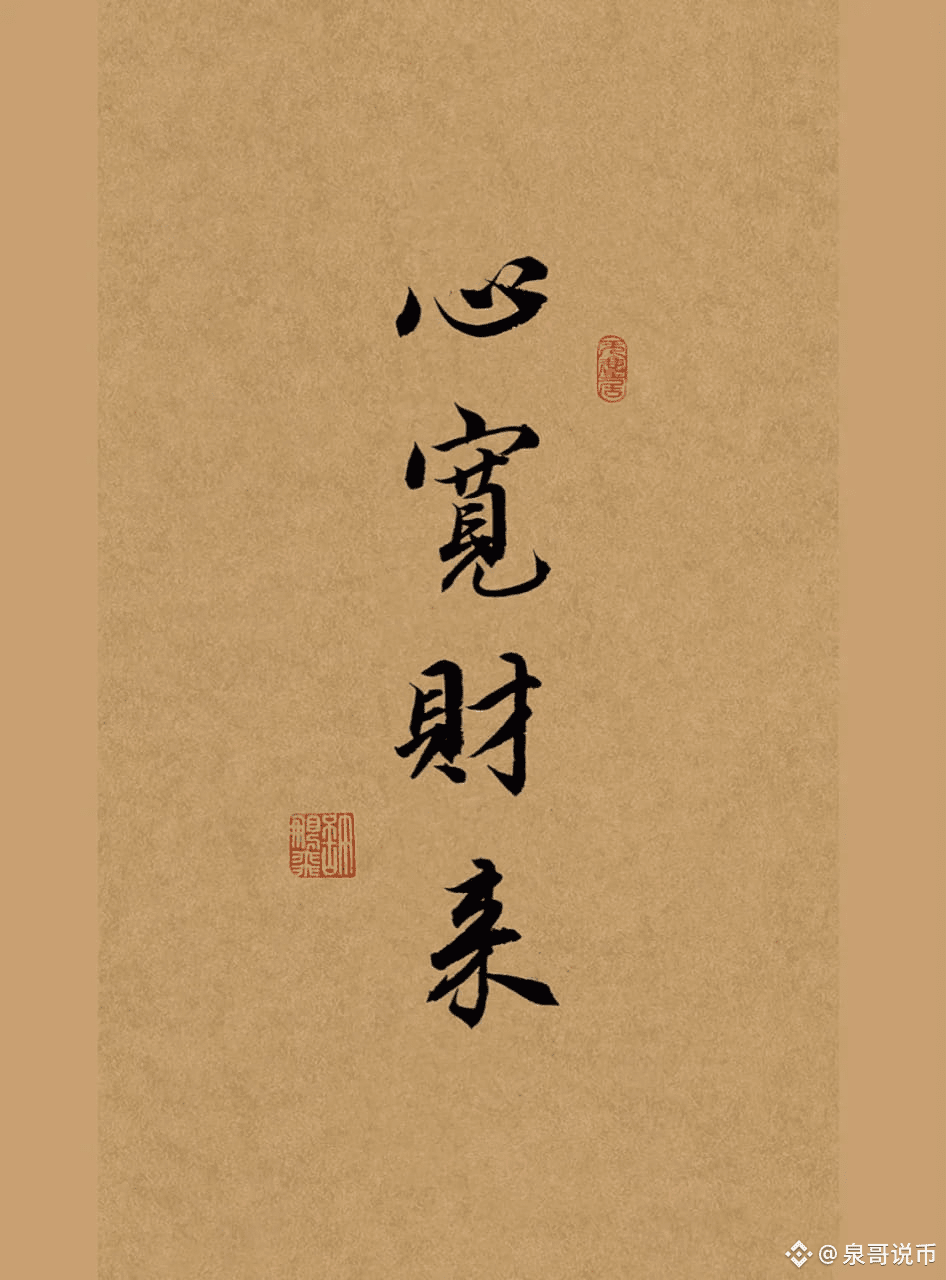 心
寬
財
来
@泉哥说币